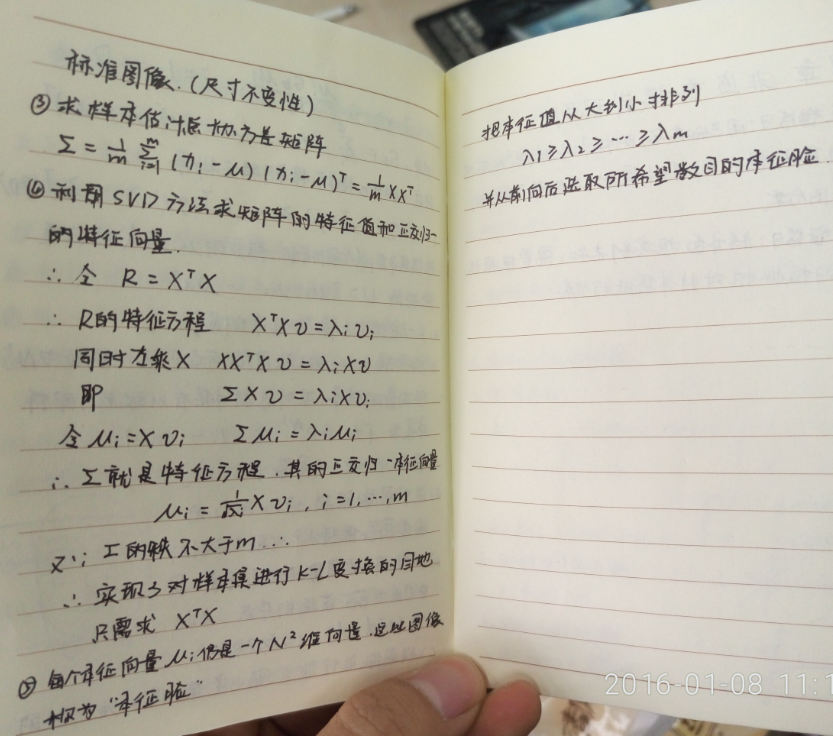 标准图像.(尺寸不变性)
③求样本估计总协方差矩阵
Σ = 1/m Σ_{i=1}^{m} (x_i - μ)(x_i - μ)^T = 1/m XX^T
④利用SVD方法求矩阵的特征值和正交归一
的特征向量.
∴令 R = X^T X
∴ R的特征方程 X^T X v = λ_i v_i
同时左乘X XX^T X v = λ_i X v
即 Σ X v = λ_i X v_i
令 μ_i = X v_i Σ μ_i = λ_i μ_i
∴ Σ就是特征方程.其的正交归一本征向量
μ_i = 1/√λ_i X v_i , i = 1, …, m
又∵ Σ的秩不大于m …
∴ 实现了对样本集进行K-L变换的目地
只需求 X^T X
⑤ 每个本征向量 μ_i 仍是一个N²维向量.这些图像
称为“本征脸”
把本征值从大到小排列
λ1 ≥ λ2 ≥ … ≥ λm
并从前向后选取所希望数目的本征脸.
2016-01-08 11:1